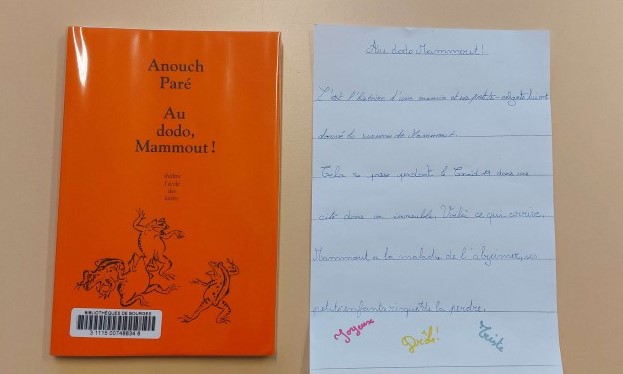 Anouch
Paré
Au
dodo,
Mammout !
théâtre
l'école
des
loisirs
BIBLIOTHÈQUES DE BOURGES
3 1115 00748834 6
Au dodo Mammout !
C'est l'histoire d'une mamie et ses petits-enfants lui ont
donné le surnom de Mammout.
Cela se passe pendant le Covid 19 dans une
cité dans un immeuble. Voilà ce qui arrive,
Mammout a la maladie de l'alzeimer, ses
petits enfants risquent de la perdre.
Joyeuse
Drôle !
Triste